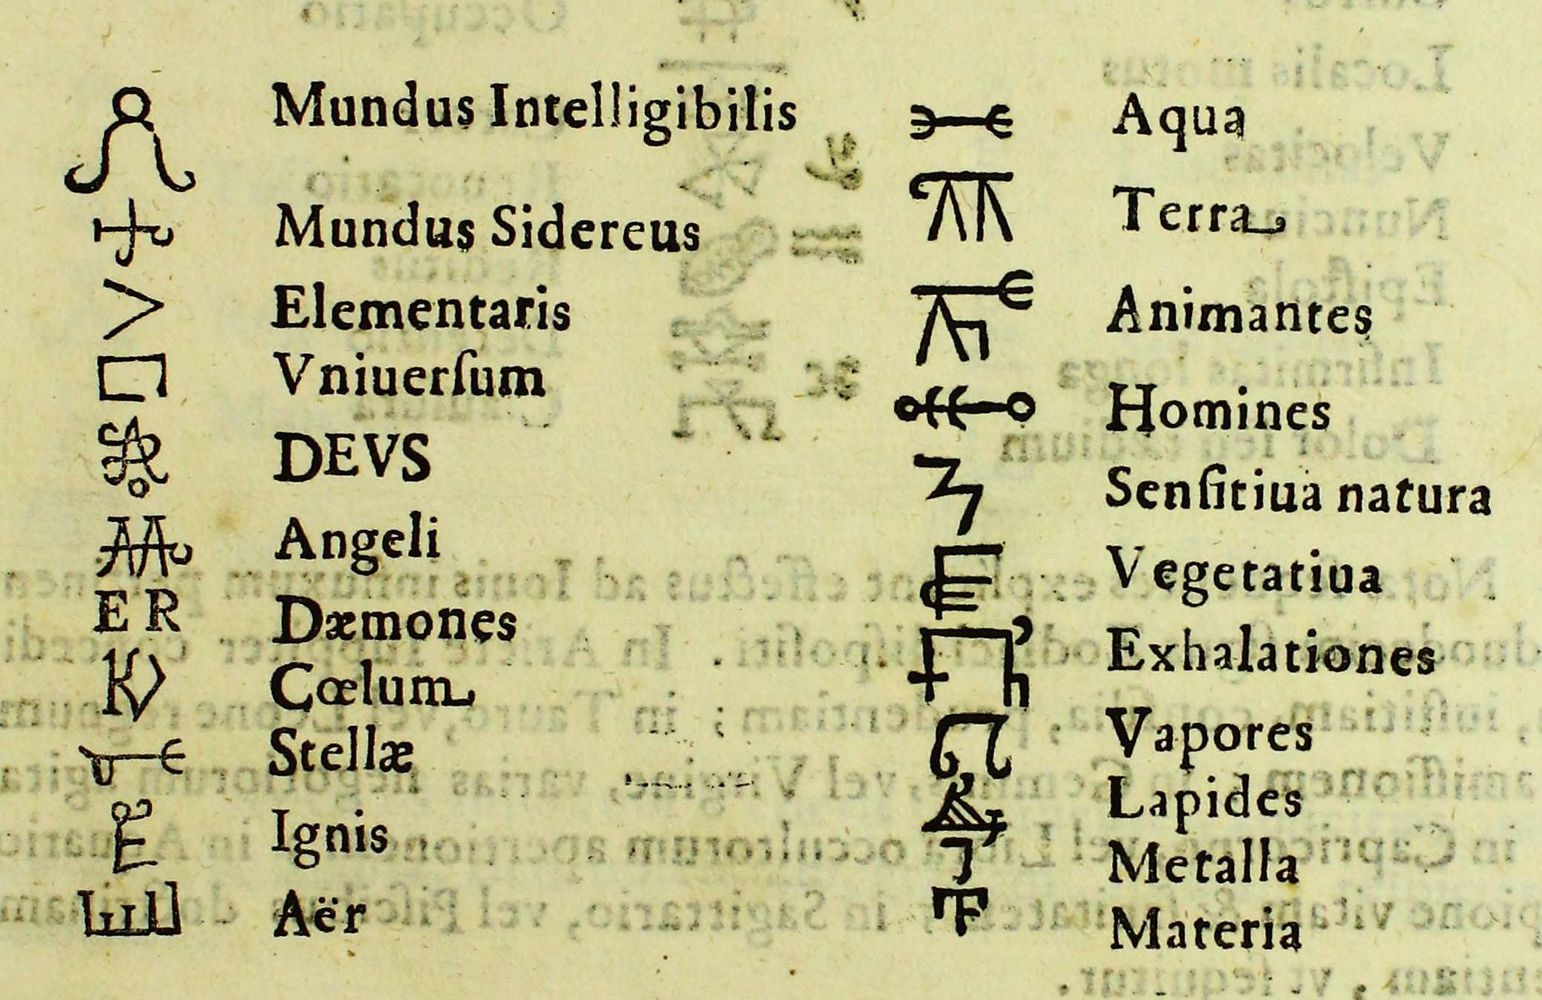 Mundus Intelligibilis
Mundus Sidereus
Elementaris
Vniuerſum
DEVS
Angeli
E R Dæmones
Cœlum
Stellæ
Ignis
Aër
Aqua
Terra
Animantes
Homines
Senſitiua natura
Vegetatiua
Exhalationes
Vapores
Lapides
Metalla
Materia